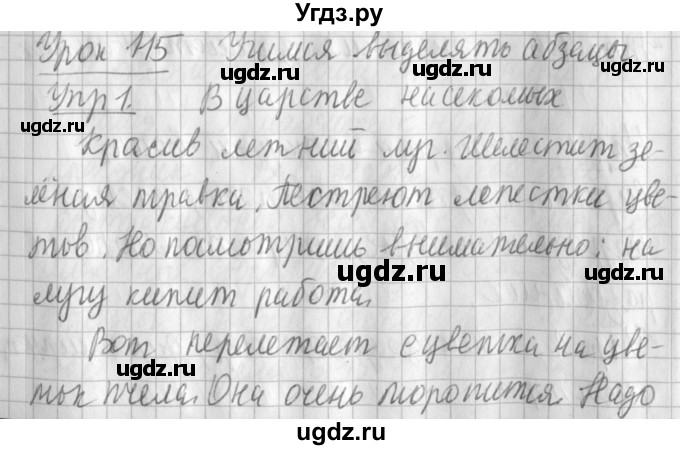 Угдз.ру
Урок 115 Учимся выделять абзацы
ugdz.ru ugdz.ru
Упр 1. В царстве насекомых
ugdz.ru ugdz.ru
Красив летний луг. Шелестит зе-
ugdz.ru
лёная травка. Пестреют лепестки цве-
ugdz.ru
тов. Но посмотришь внимательно: на
ugdz.ru
лугу кипит работа.
Вот перелетает с цветка на цве-
ugdz.ru ugdz.ru
ток пчела. Она очень торопится. Надо
ugdz.ru